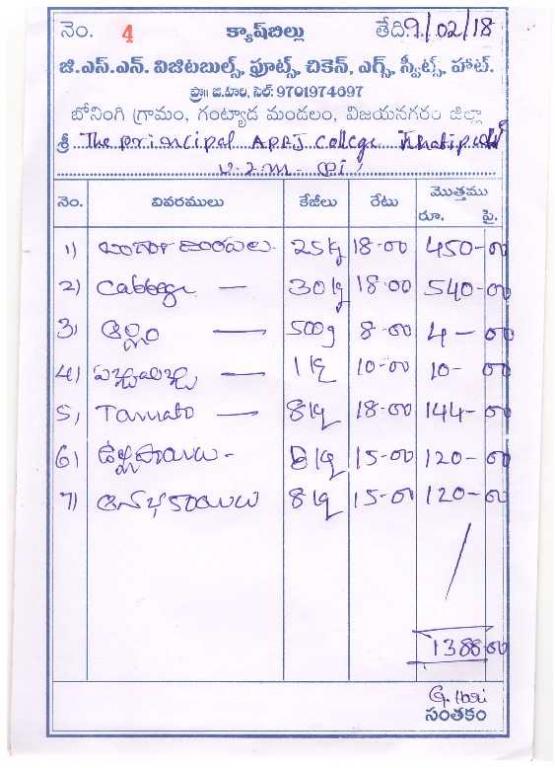 నెం. 4 క్యాష్‌బిల్లు తేది 9/02/18
జి.ఎస్.ఎన్. విజిటబుల్స్, ఫ్రూట్స్, చికెన్, ఎగ్స్, స్వీట్స్, హాట్.
ప్రొ॥ జి.హరి, సెల్: 9701974697
బోనింగి గ్రామం, గంట్యాడ మండలం, విజయనగరం జిల్లా
శ్రీ The principal APRJ college
V.Z.M
నెం. వివరములు కేజీలు రేటు మొత్తము
రూ. పై.
1) బంగాళ దుంపలు 25 kg 18-00 450-00
2) Cabbege — 30 kg 18-00 540-00
3) అల్లం — 500g 8-00 4-00
4) — 1 kg 10-00 10-00
5) Tamato — 8 kg 18-00 144-00
6) ఉల్లిపాయలు - 8 kg 15-00 120-00
7) ఆనపకాయలు 8 kg 15-00 120-00
1388-00
G. Hari
సంతకం